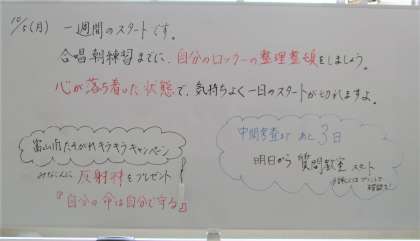 10/5(月) 一週間のスタートです。
合唱朝練習までに、自分のロッカーの整理整頓をしましょう。
心が落ち着いた状態で、気持ちよく一日のスタートが切れますよ。
富山県たそがれキラキラキャンペーン
みなさんに 反射材をプレゼント
『自分の命は自分で守る』
中間考査まで あと3日
明日から 質問教室 スタート